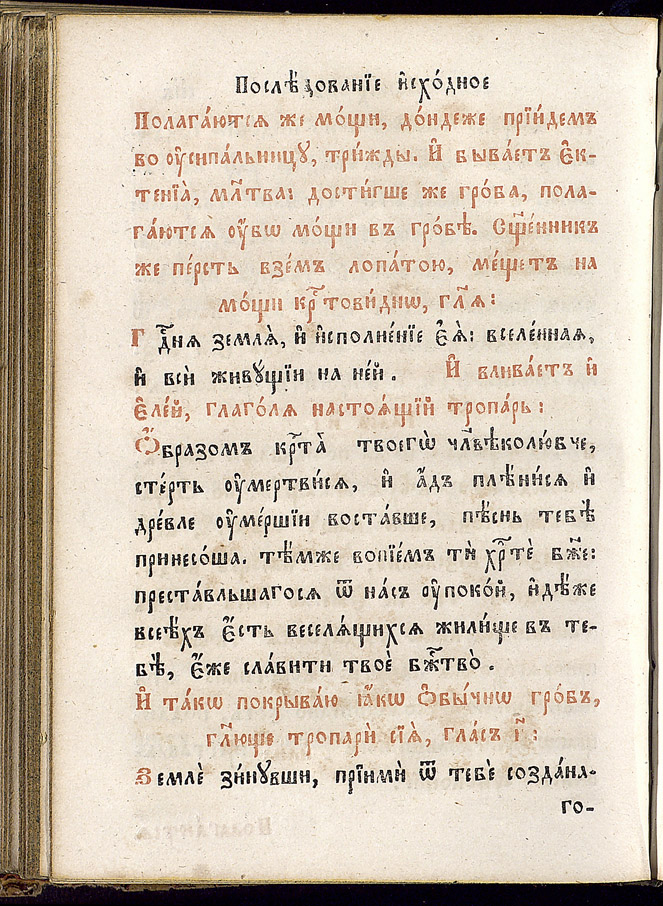 Послѣ́дованїе и҆схо́дное
Полага́ютсѧ же мо́щи, до́ндеже прїи́демъ
во ᲂу҆сыпа́льницꙋ, три́жды. И҆ быва́етъ є҆к-
тенїа̀, мл҃тва: дости́гше же гро́ба, пола-
га́ютсѧ ᲂу҆́бѡ мо́щи въ гро́бѣ. Сщ҃е́нникъ
же пе́рсть взе́мъ лопа́тою, ме́щетъ на
мо́щи крⷭ҇тови́днѡ, гл҃ѧ:
Гдⷭ҇нѧ землѧ̀, и҆ и҆сполне́нїе є҆ѧ̀: вселе́ннаѧ,
и҆ всѝ живꙋ́щїи на не́й. И҆ влива́етъ и҆
є҆ле́й, глаго́лѧ настоѧ́щїй тропа́рь:
Ѻ҆́бразомъ крⷭ҇та̀ твоегѡ̀ чл҃вѣколю́бче,
сме́рть ᲂу҆мертви́сѧ, и҆ а҆́дъ плѣни́сѧ и҆
дре́вле ᲂу҆ме́ршїи воста́вше, пѣ́снь тебѣ̀
принесо́ша. тѣ́мже вопїе́мъ тѝ хрⷭ҇тѐ бж҃е:
преста́вльшагосѧ ѿ на́съ ᲂу҆поко́й, и҆дѣ́же
всѣ́хъ є҆́сть веселѧ́щихсѧ жили́ще въ те-
бѣ̀, є҆́же сла́вити твоѐ бж҃тво̀.
И҆ та́кѡ покрыва́ю ꙗ҆́кѡ ѻ҆бы́чнѡ гро́бъ,
гл҃юще тропарѝ сїѧ̀, гла́съ и҃:
Землѐ зи́нꙋвши, прїимѝ ѿ тебѐ созда́на-
го-